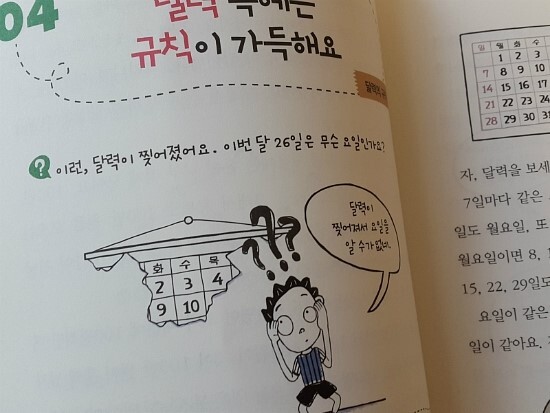 04
달력 속에는
규칙이 가득해요
이런, 달력이 찢어졌어요. 이번 달 26일은 무슨 요일인가요?
달력이
찢어져서 요일을
알 수가 없네.
???
화 수 목
2 3 4
9 10
일 월 화 수
1 2 3
7 8 9 10
14 15 16 17
21 22 23 24
28 29 30 31
자, 달력을 보세
7일마다 같은
일도 월요일, 또
월요일이면 8, 1
15, 22, 29일도
요일이 같은
일이 같아요.